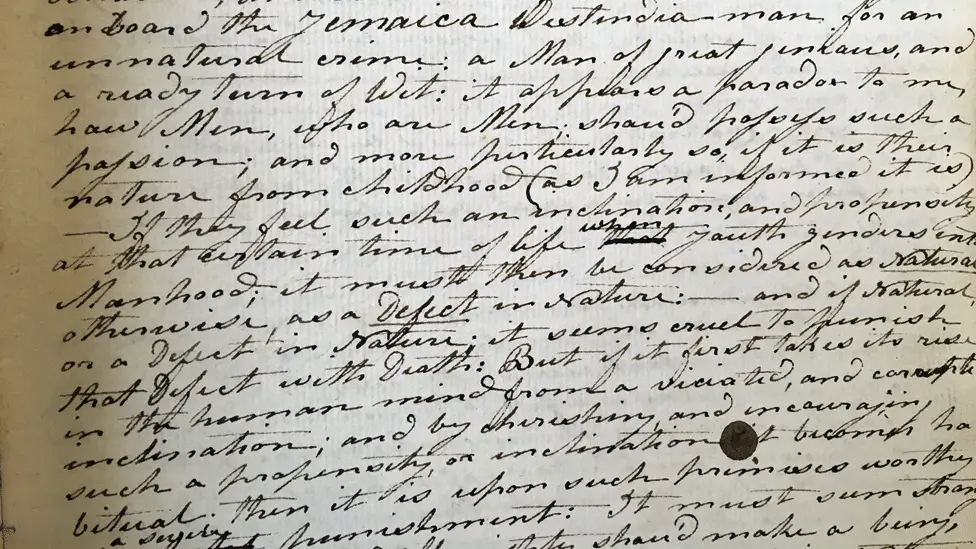 on board the Jemaica Westindia-man for an
unnatural crime: a Man of great jenious, and
a ready turn of Wit: it appears a paradox to me,
how Men, who are Men, shou'd possess such a
passion; and more perticularly so, if it is their
nature from childhood (as I am informed it is)
—If they feel such an inclination, and propensity,
at that certain time of life when youth genders into
Manhood; it must then be considered as Natural
otherwise, as a Defect in Nature:— and if Natural
or a Defect in Nature; it seems cruel to punish
that Defect with Death: But if it first takes its rise
in the human mind from a viciated, and corrupted
inclination; and by cherishing and incouraging
such a propensity, or inclination it becomes ha
bitual: then it is upon such premises worthy
punishment: It must sum
shou'd make a being,